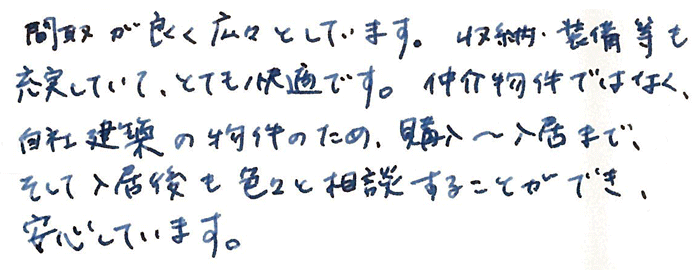 間取が良く広々としています。収納・装備等も
充実していて、とても快適です。仲介物件ではなく、
自社建築の物件のため、購入〜入居まで、
そして入居後も色々と相談することができ、
安心しています。